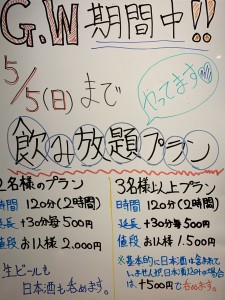 G.W期間中!!
5/5(日)まで
やってます
飲み放題プラン
2名様のプラン
時間 120分(2時間)
延長 +30分毎500円
値段 お1人様 2.000円
生ビールも
日本酒も呑めます。
3名様以上プラン
時間 120分(2時間)
延長 +30分毎500円
値段 お1人様 1.500円
※基本的に日本酒は含まれて
いませんが、日本酒込みの場合
は、+500円で呑めます。